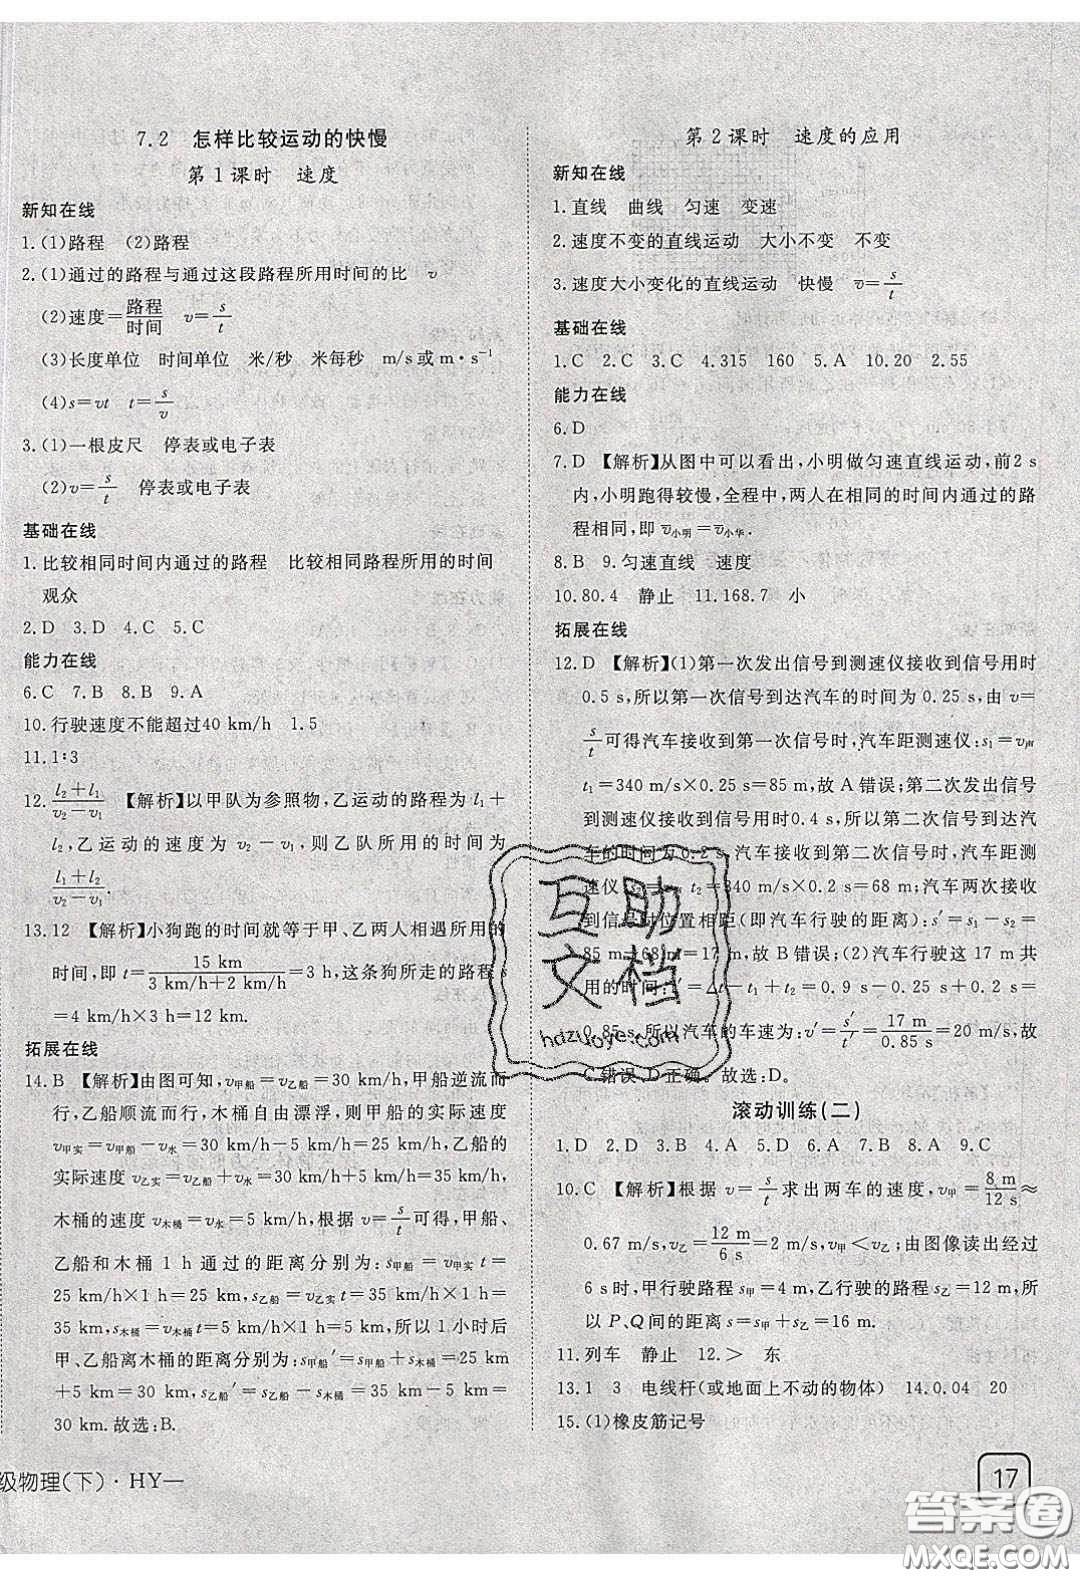 7.2 怎样比较运动的快慢
第1课时 速度
新知在线
1.(1)路程 (2)路程
2.(1)通过的路程与通过这段路程所用时间的比 v
(2)速度=路程/时间 v=s/t
(3)长度单位 时间单位 米/秒 米每秒 m/s或m·s⁻¹
(4)s=vt t=s/v
3.(1)一根皮尺 停表或电子表
(2)v=s/t 停表或电子表
基础在线
1.比较相同时间内通过的路程 比较相同路程所用的时间
观众
2.D 3.D 4.C 5.C
能力在线
6.C 7.B 8.B 9.A
10.行驶速度不能超过40 km/h 1.5
11.1∶3
12.(l₂+l₁)/(v₂−v₁) 【解析】以甲队为参照物,乙运动的路程为 l₁+
l₂,乙运动的速度为 v₂−v₁,则乙队所用的时间为
(l₁+l₂)/(v₂−v₁).
13.12 【解析】小狗跑的时间就等于甲、乙两人相遇所用的
时间,即 t=15 km/(3 km/h+2 km/h)=3 h,这条狗所走的路程 s
=4 km/h×3 h=12 km.
拓展在线
14.B 【解析】由图可知,v甲船=v乙船=30 km/h,甲船逆流而
行,乙船顺流而行,木桶自由漂浮,则甲船的实际速度
v甲实=v甲船−v水=30 km/h−5 km/h=25 km/h,乙船的
实际速度 v乙实=v乙船+v水=30 km/h+5 km/h=35 km/h,
木桶的速度 v木桶=v水=5 km/h,根据 v=s/t可得,甲船、
乙船和木桶 1 h 通过的距离分别为:s甲船=v甲实t=
25 km/h×1 h=25 km,s乙船=v乙实t=35 km/h×1 h=
35 km,s木桶=v木桶t=5 km/h×1 h=5 km,所以1小时后
甲、乙船离木桶的距离分别为:s甲船′=s甲船+s木桶=25 km
+5 km=30 km,s乙船′=s乙船−s木桶=35 km−5 km=
30 km.故选:B.
级物理(下)·HY—
第2课时 速度的应用
新知在线
1.直线 曲线 匀速 变速
2.速度不变的直线运动 大小不变 不变
3.速度大小变化的直线运动 快慢 v=s/t
基础在线
1.C 2.C 3.C 4.315 160 5.A 10.20 2.55
能力在线
6.D
7.D 【解析】从图中可以看出,小明做匀速直线运动,前2 s
内,小明跑得较慢,全程中,两人在相同的时间内通过的路
程相同,即 v小明=v小华.
8.B 9.匀速直线 速度
10.80.4 静止 11.168.7 小
拓展在线
12.D 【解析】(1)第一次发出信号到测速仪接收到信号用时
0.5 s,所以第一次信号到达汽车的时间为 0.25 s,由 v=
s/t可得汽车接收到第一次信号时,汽车距测速仪:s₁=v声
t₁=340 m/s×0.25 s=85 m,故 A 错误;第二次发出信号
到测速仪接收到信号用时0.4 s,所以第二次信号到达汽
车的时间为0.2 s,汽车接收到第二次信号时,汽车距测
速仪 s₂=v声t₂=340 m/s×0.2 s=68 m;汽车两次接收
到信号时位置相距(即汽车行驶的距离):s′=s₁−s₂=
85 m−68 m=17 m,故 B 错误;(2)汽车行驶这 17 m 共
用的时间:t′=Δt−t₁+t₂=0.9 s−0.25 s+0.2 s=
0.85 s,所以汽车的车速为:v′=s′/t′=17 m/0.85 s=20 m/s,故
C 错误、D 正确。故选:D。
滚动训练(二)
1.D 2.D 3.B 4.A 5.A 6.A 7.B 8.A 9.C
10.C 【解析】根据 v=s/t求出两车的速度,v甲=8 m/12 s≈
0.67 m/s,v乙=12 m/6 s=2 m/s,v甲<v乙;由图像读出经过
6 s时,甲行驶路程 s甲=4 m,乙行驶路程 s乙=12 m,所
以 P、Q间的距离 s=s甲+s乙=16 m.
11.列车 静止 12.> 东
13.1 3 电线杆(或地面上不动的物体) 14.0.04 20
15.(1)橡皮筋记号
17
互助文档
hdzuoye.com
答案圈
MXQE.COM